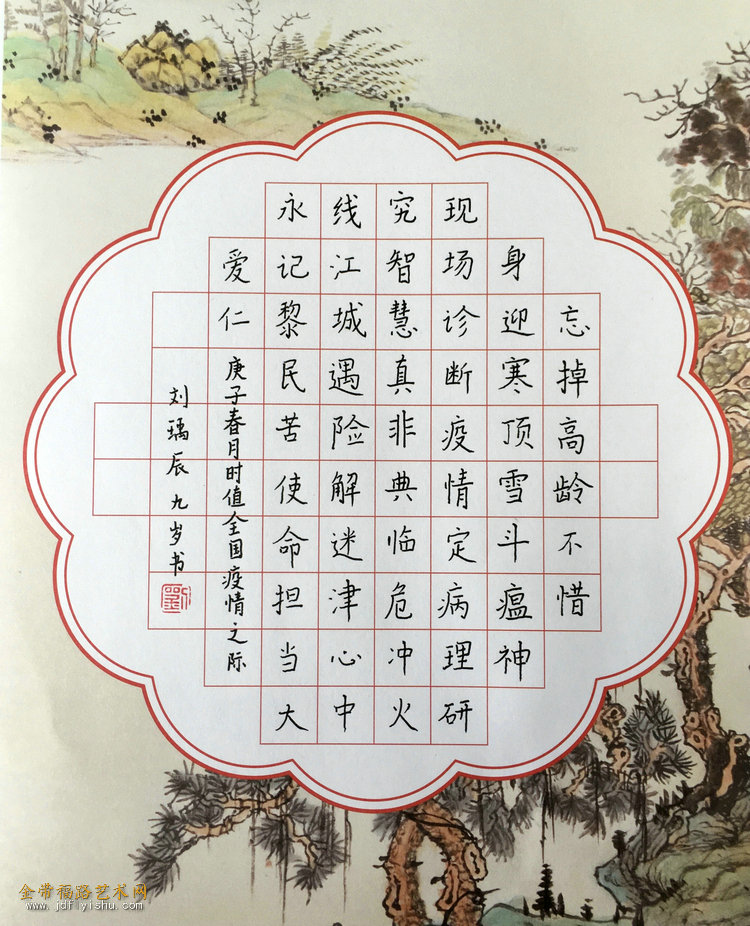 忘掉高龄不惜
身迎寒顶雪斗瘟神
现场诊断疫情定病理研
究智慧真非典临危冲火
线江城遇险解迷津心中
永记黎民苦使命担当大
爱仁
庚子春月时值全国疫情之际
刘瑀辰九岁书
金带福路艺术网
www.jdflyishu.com